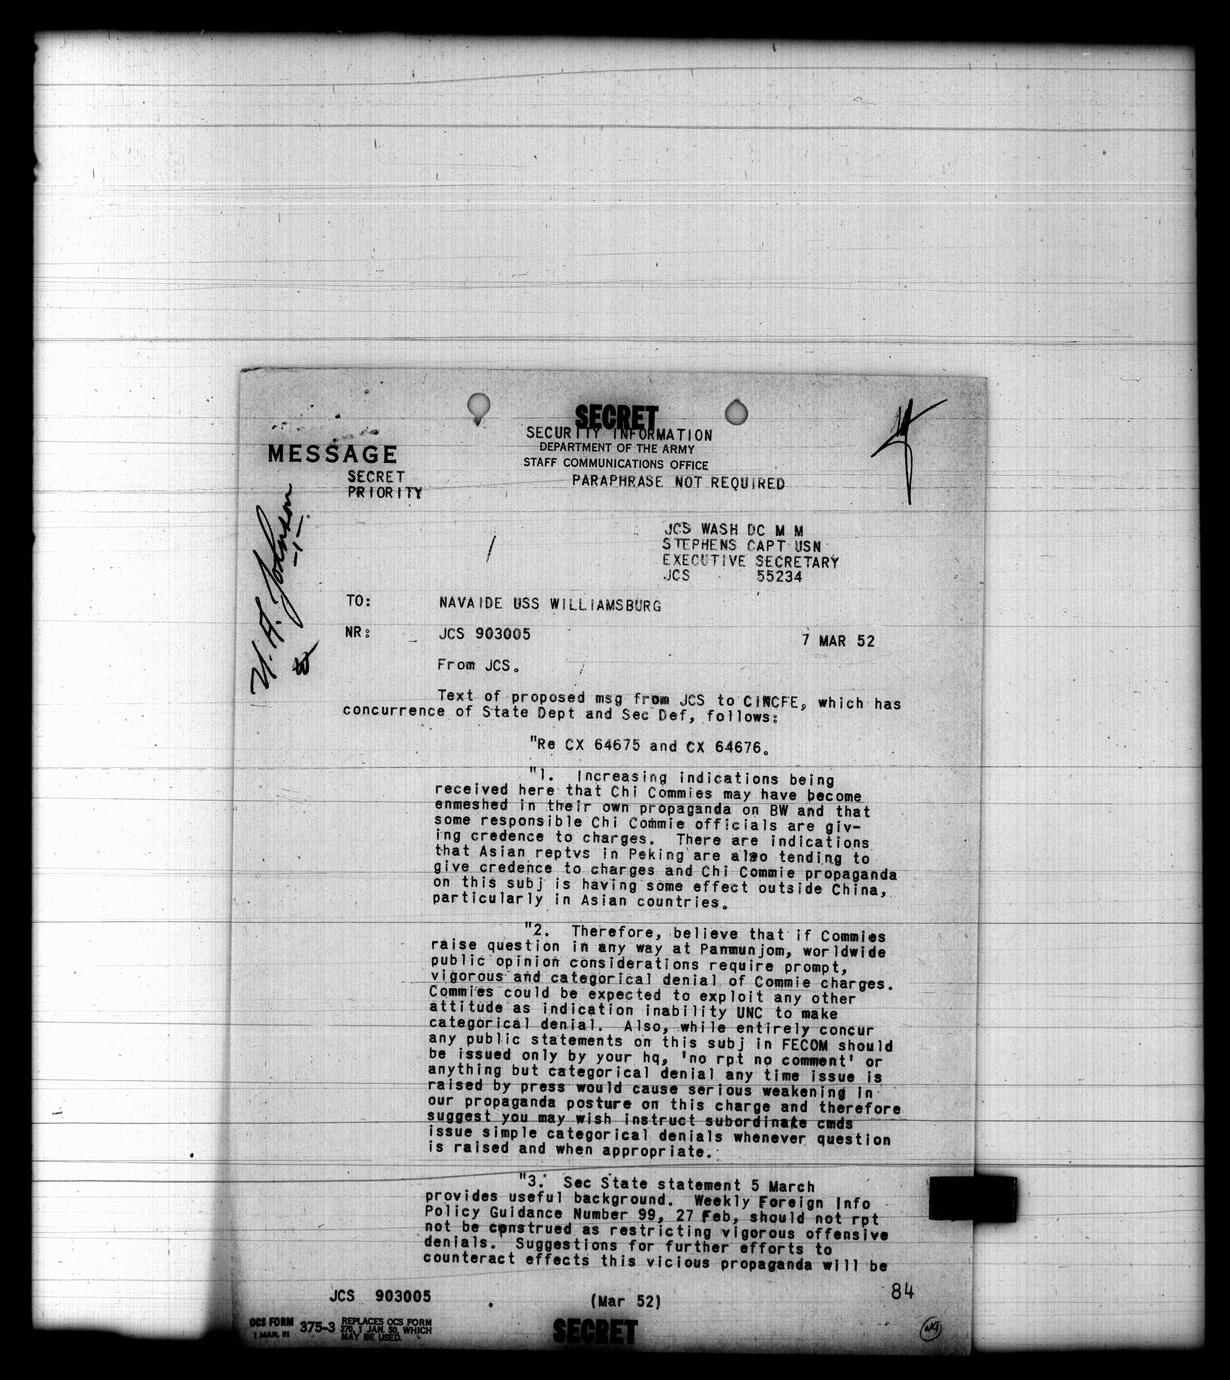 SECRET
SECURITY INFORMATION
DEPARTMENT OF THE ARMY
STAFF COMMUNICATIONS OFFICE
MESSAGE
SECRET
PRIORITY
PARAPHRASE NOT REQUIRED
U. A. Johnson
JCS WASH DC M M
STEPHENS CAPT USN
EXECUTIVE SECRETARY
JCS 55234
TO: NAVAIDE USS WILLIAMSBURG
NR: JCS 903005 7 MAR 52
From JCS.
Text of proposed msg from JCS to CINCFE, which has
concurrence of State Dept and Sec Def, follows:
"Re CX 64675 and CX 64676.
"1. Increasing indications being
received here that Chi Commies may have become
enmeshed in their own propaganda on BW and that
some responsible Chi Commie officials are giv-
ing credence to charges. There are indications
that Asian reptvs in Peking are also tending to
give credence to charges and Chi Commie propaganda
on this subj is having some effect outside China,
particularly in Asian countries.
"2. Therefore, believe that if Commies
raise question in any way at Panmunjom, worldwide
public opinion considerations require prompt,
vigorous and categorical denial of Commie charges.
Commies could be expected to exploit any other
attitude as indication inability UNC to make
categorical denial. Also, while entirely concur
any public statements on this subj in FECOM should
be issued only by your hq, 'no rpt no comment' or
anything but categorical denial any time issue is
raised by press would cause serious weakening in
our propaganda posture on this charge and therefore
suggest you may wish instruct subordinate cmds
issue simple categorical denials whenever question
is raised and when appropriate.
"3. Sec State statement 5 March
provides useful background. Weekly Foreign Info
Policy Guidance Number 99, 27 Feb, should not rpt
not be construed as restricting vigorous offensive
denials. Suggestions for further efforts to
counteract effects this vicious propaganda will be
JCS 903005 (Mar 52) 84
OCS FORM 375-3 REPLACES OCS FORM
1 MAR. 51 270, 1 JAN. 50, WHICH
MAY BE USED.
SECRET